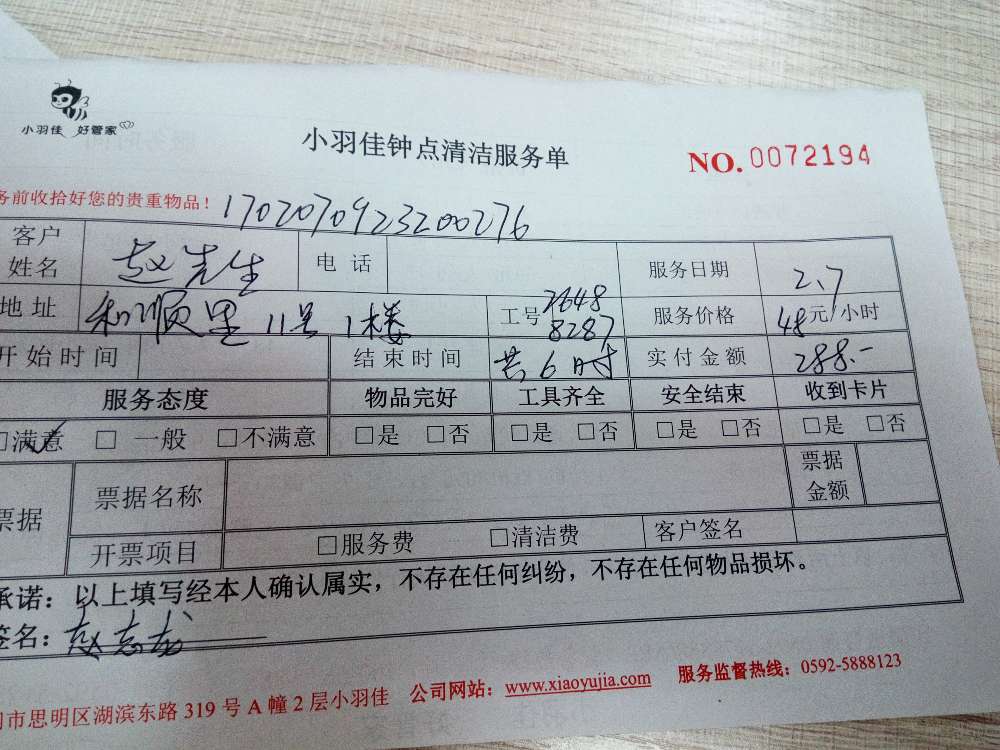 小羽佳 好管家
小羽佳钟点清洁服务单
NO.0072194
务前收拾好您的贵重物品！
1702070923200276
客户姓名 赵先生 电话 服务日期 2.7
地址 和顺里11号1楼 工号 7648 8287 服务价格 48元/小时
开始时间 结束时间 共6时 实付金额 288.-
服务态度 物品完好 工具齐全 安全结束 收到卡片
□满意 □一般 □不满意 □是 □否 □是 □否 □是 □否 □是 □否
票据 票据名称 票据金额
开票项目 □服务费 □清洁费 客户签名
承诺：以上填写经本人确认属实，不存在任何纠纷，不存在任何物品损坏。
签名：赵志龙
门市思明区湖滨东路319号A幢2层小羽佳 公司网站：www.xiaoyujia.com 服务监督热线：0592-5888123